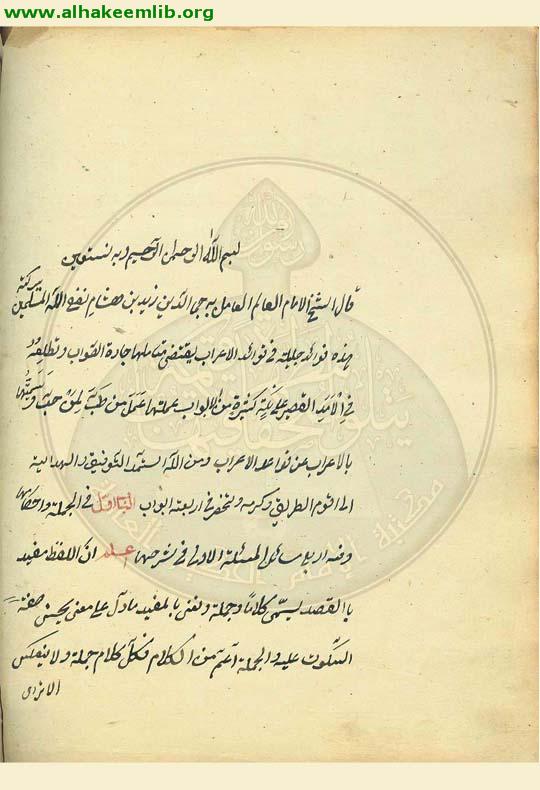 www.alhakeemlib.org
بسم الله الرحمن الرحيم وبه نستعين
قال الشيخ الامام العالم العامل بهجى الدين زيد بن هشام نفع الله المسلمين ببركته
هذه فوائد جليلة في قواعد الاعراب يقتضى متاملها جادة الصواب وتطلعه
في الامد القصير على نكتة كثيرة من الابواب عملتها عمل من طب لمن حب وسميتها
بالاعراب عن قواعد الاعراب ومن الله استمد التوفيق والهداية
الى اقوم الطريق وكرمه وتنحصر في اربعة ابواب الباب الاول في الجملة واحكامها
وفيه اربع مسائل المسئلة الاولى في شرحها اعلم ان اللفظ مفيد
بالقصد يسمى كلاما وجملة ونعنى بالمفيد ما دل على معنى يحسن
السكوت عليه والجملة اعم من الكلام فكل كلام جملة ولا ينعكس
الا ترى
رسول الله